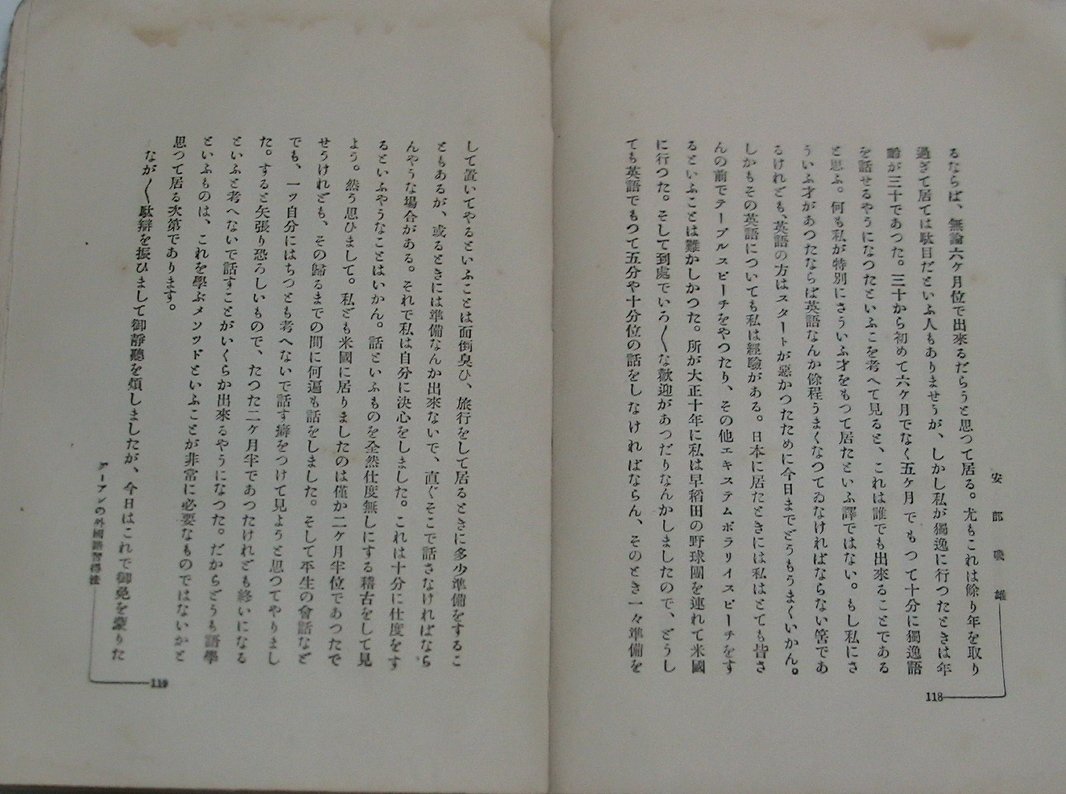 安部磯雄
るならば、無論六ケ月位で出來るだらうと思つて居る。尤もこれは餘り年を取り
過ぎて居ては駄目だといふ人もありませうが、しかし私が獨逸に行つたときは年
齡が三十であつた。三十から初めて六ケ月でなく五ケ月でもつて十分に獨逸語
を話せるやうになつたといふこを考へて見ると、これは誰でも出來ることである
と思ふ。何も私が特別にさういふ才をもつて居たといふ譯ではない。もし私にさ
ういふ才があつたならば英語なんか餘程うまくなつてゐなければならない筈であ
るけれども、英語の方はスタートが惡かつたために今日までどうもうまくいかん。
しかもその英語についても私は經驗がある。日本に居たときには私はとても皆さ
んの前でテーブルスピーチをやつたり、その他エキステムポラリイスピーチをす
るといふことは難かしかつた。所が大正十年に私は早稻田の野球團を連れて米國
に行つた。そして到處でいろ〱な歡迎があつたりなんかしましたので、どうし
ても英語でもつて五分や十分位の話をしなければならん、そのとき一々準備を
118
して置いてやるといふことは面倒臭ひ、旅行をして居るときに多少準備をするこ
ともあるが、或るときには準備なんか出來ないで、直ぐそこで話さなければなら
んやうな場合がある。それで私は自分に決心をしました。これは十分に仕度をす
るといふやうなことはいかん。話といふものを全然仕度無しにする稽古をして見
よう。然う思ひまして。私ども米國に居りましたのは僅か二ケ月半位であつたで
せうけれども、その歸るまでの間に何遍も話をしました。そして平生の會話など
でも、一ツ自分にはちつとも考へないで話す癖をつけて見ようと思つてやりまし
た。すると矢張り恐ろしいもので、たつた二ケ月半であつたけれども終いになる
といふと考へないで話すことがいくらか出來るやうになつた。だからどうも語學
といふものは、これを學ぶメソツドといふことが非常に必要なものではないかと
思つて居る次第であります。
なが〱駄辯を振ひまして御靜聽を煩しましたが、今日はこれで御免を蒙りた
の外國語習得法
119